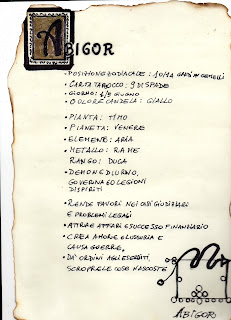 ABIGOR
• POSIZIONE ZODIACALE: 10/14 GRADI GEMELLI
• CARTA TAROCCO: 9 DI SPADE
• GIORNO: 4/8 GIUGNO
• COLORE CANDELA: GIALLO
• PIANTA: TIMO
• PIANETA: VENERE
• ELEMENTO: ARIA
• METALLO: RAME
RANGO: DUCA
• DEMONE DIURNO,
GOVERNA 60 LEGIONI
DI SPIRITI
• RENDE FAVORI NEI CASI GIUDIZIARI
E PROBLEMI LEGALI
• ATTRAE AFFARI E SUCCESSO FINANZIARIO
• CREA AMORE E LUSSURIA E
CAUSA GUERRE,
• DA' ORDINI AGLI ESERCITI,
SCOPRE LE COSE NASCOSTE
ABIGOR